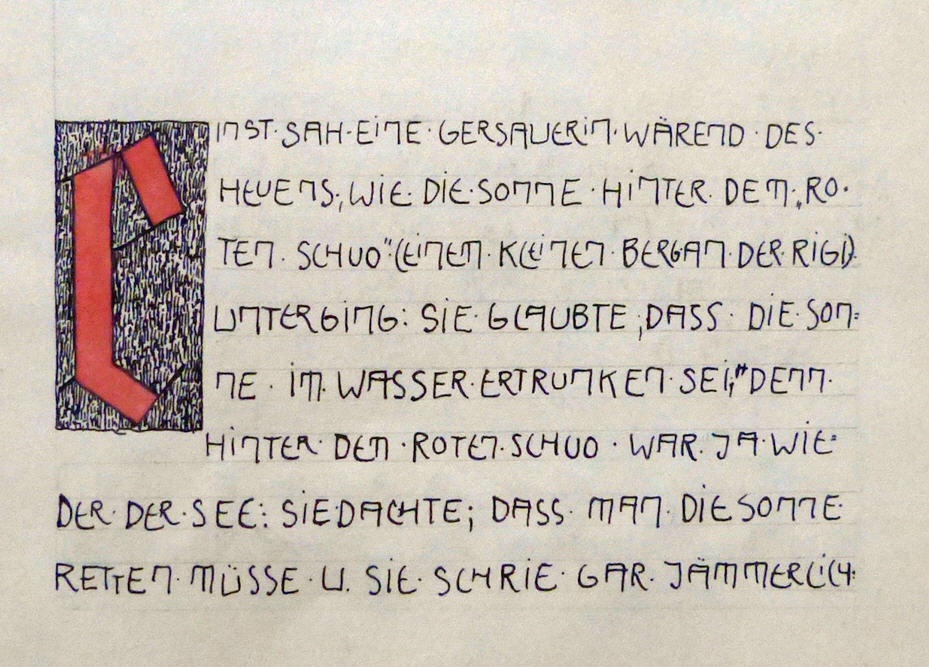 EINST·SAH·EINE·GERSAUERIN·WÄREND·DES·
HEUENS;WIE·DIE·SONNE·HINTER·DEM·„RO·
TEN·SCHUO"(EINEN·KLEINEN·BERG·AN·DER·RIGI)
UNTERGING: SIE·GLAUBTE ;DASS·DIE·SON=
NE·IM·WASSER·ERTRUNKEN·SEI;"DENN·
HINTER·DEM·ROTEN·SCHUO·WAR·JA·WIE=
DER·DER·SEE: SIE DACHTE; DASS·MAN·DIE SONNE·
RETTEN·MÜSSE·U. SIE·SCHRIE·GAR·JÄMMERLICH: